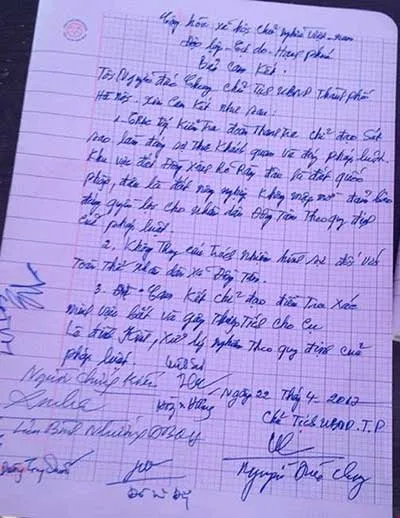 Cộng hòa xã hội chủ nghĩa Việt-Nam
Độc lập - Tự do - Hạnh phúc
Bản Cam Kết.
Tôi Nguyễn Đức Chung Chủ tịch UBND Thành phố
Hà Nội. Xin Cam Kết như sau:
1. Kiểm Tra đoàn Thanh tra chỉ đạo
làm đúng sự thật khách quan và đúng pháp luật.
Khu vực đất Đồng Sênh đâu là đất quốc
phòng, đâu là đất nông nghiệp đảm bảo
đúng quyền lợi cho nhân dân Đồng Tâm theo quy định
của pháp luật.
2. Không Truy cứu trách nhiệm hình sự đối với
Toàn Thể nhân dân xã Đồng Tâm.
3. Cam Kết chỉ đạo điều Tra xác
minh việc bắt và gây Thương Tích cho cụ
Lê Đình Kình, xử lý nghiêm Theo quy định của
pháp luật.
Người chứng kiến
Ngày 22 Thg 4. 2017
Chủ Tịch UBND. T.P
Nguyễn Đức Chung